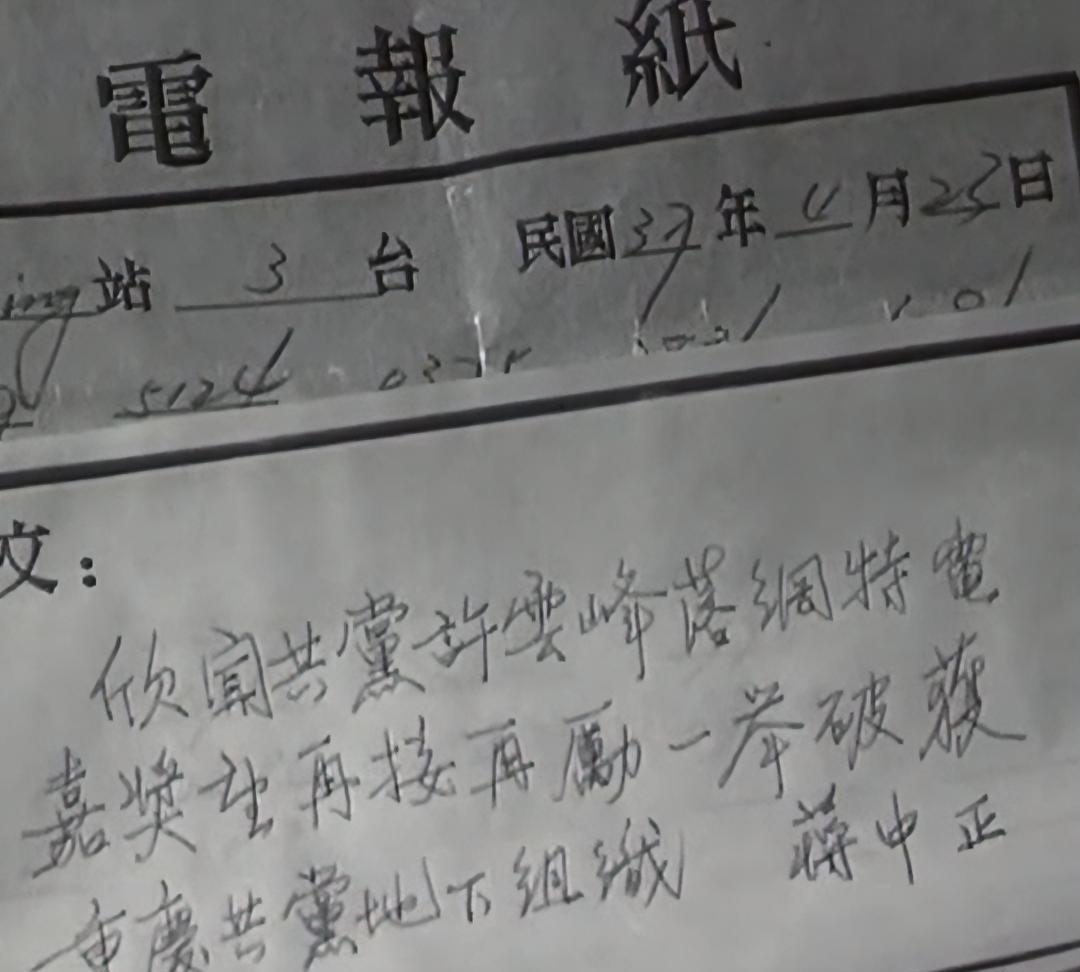 電報紙
站 3 台 民國 37 年 4 月 25 日
5124
文：
欣聞共黨許雲峰落網特電
嘉奬望再接再勵一举破獲
重慶共黨地下組織 蔣中正